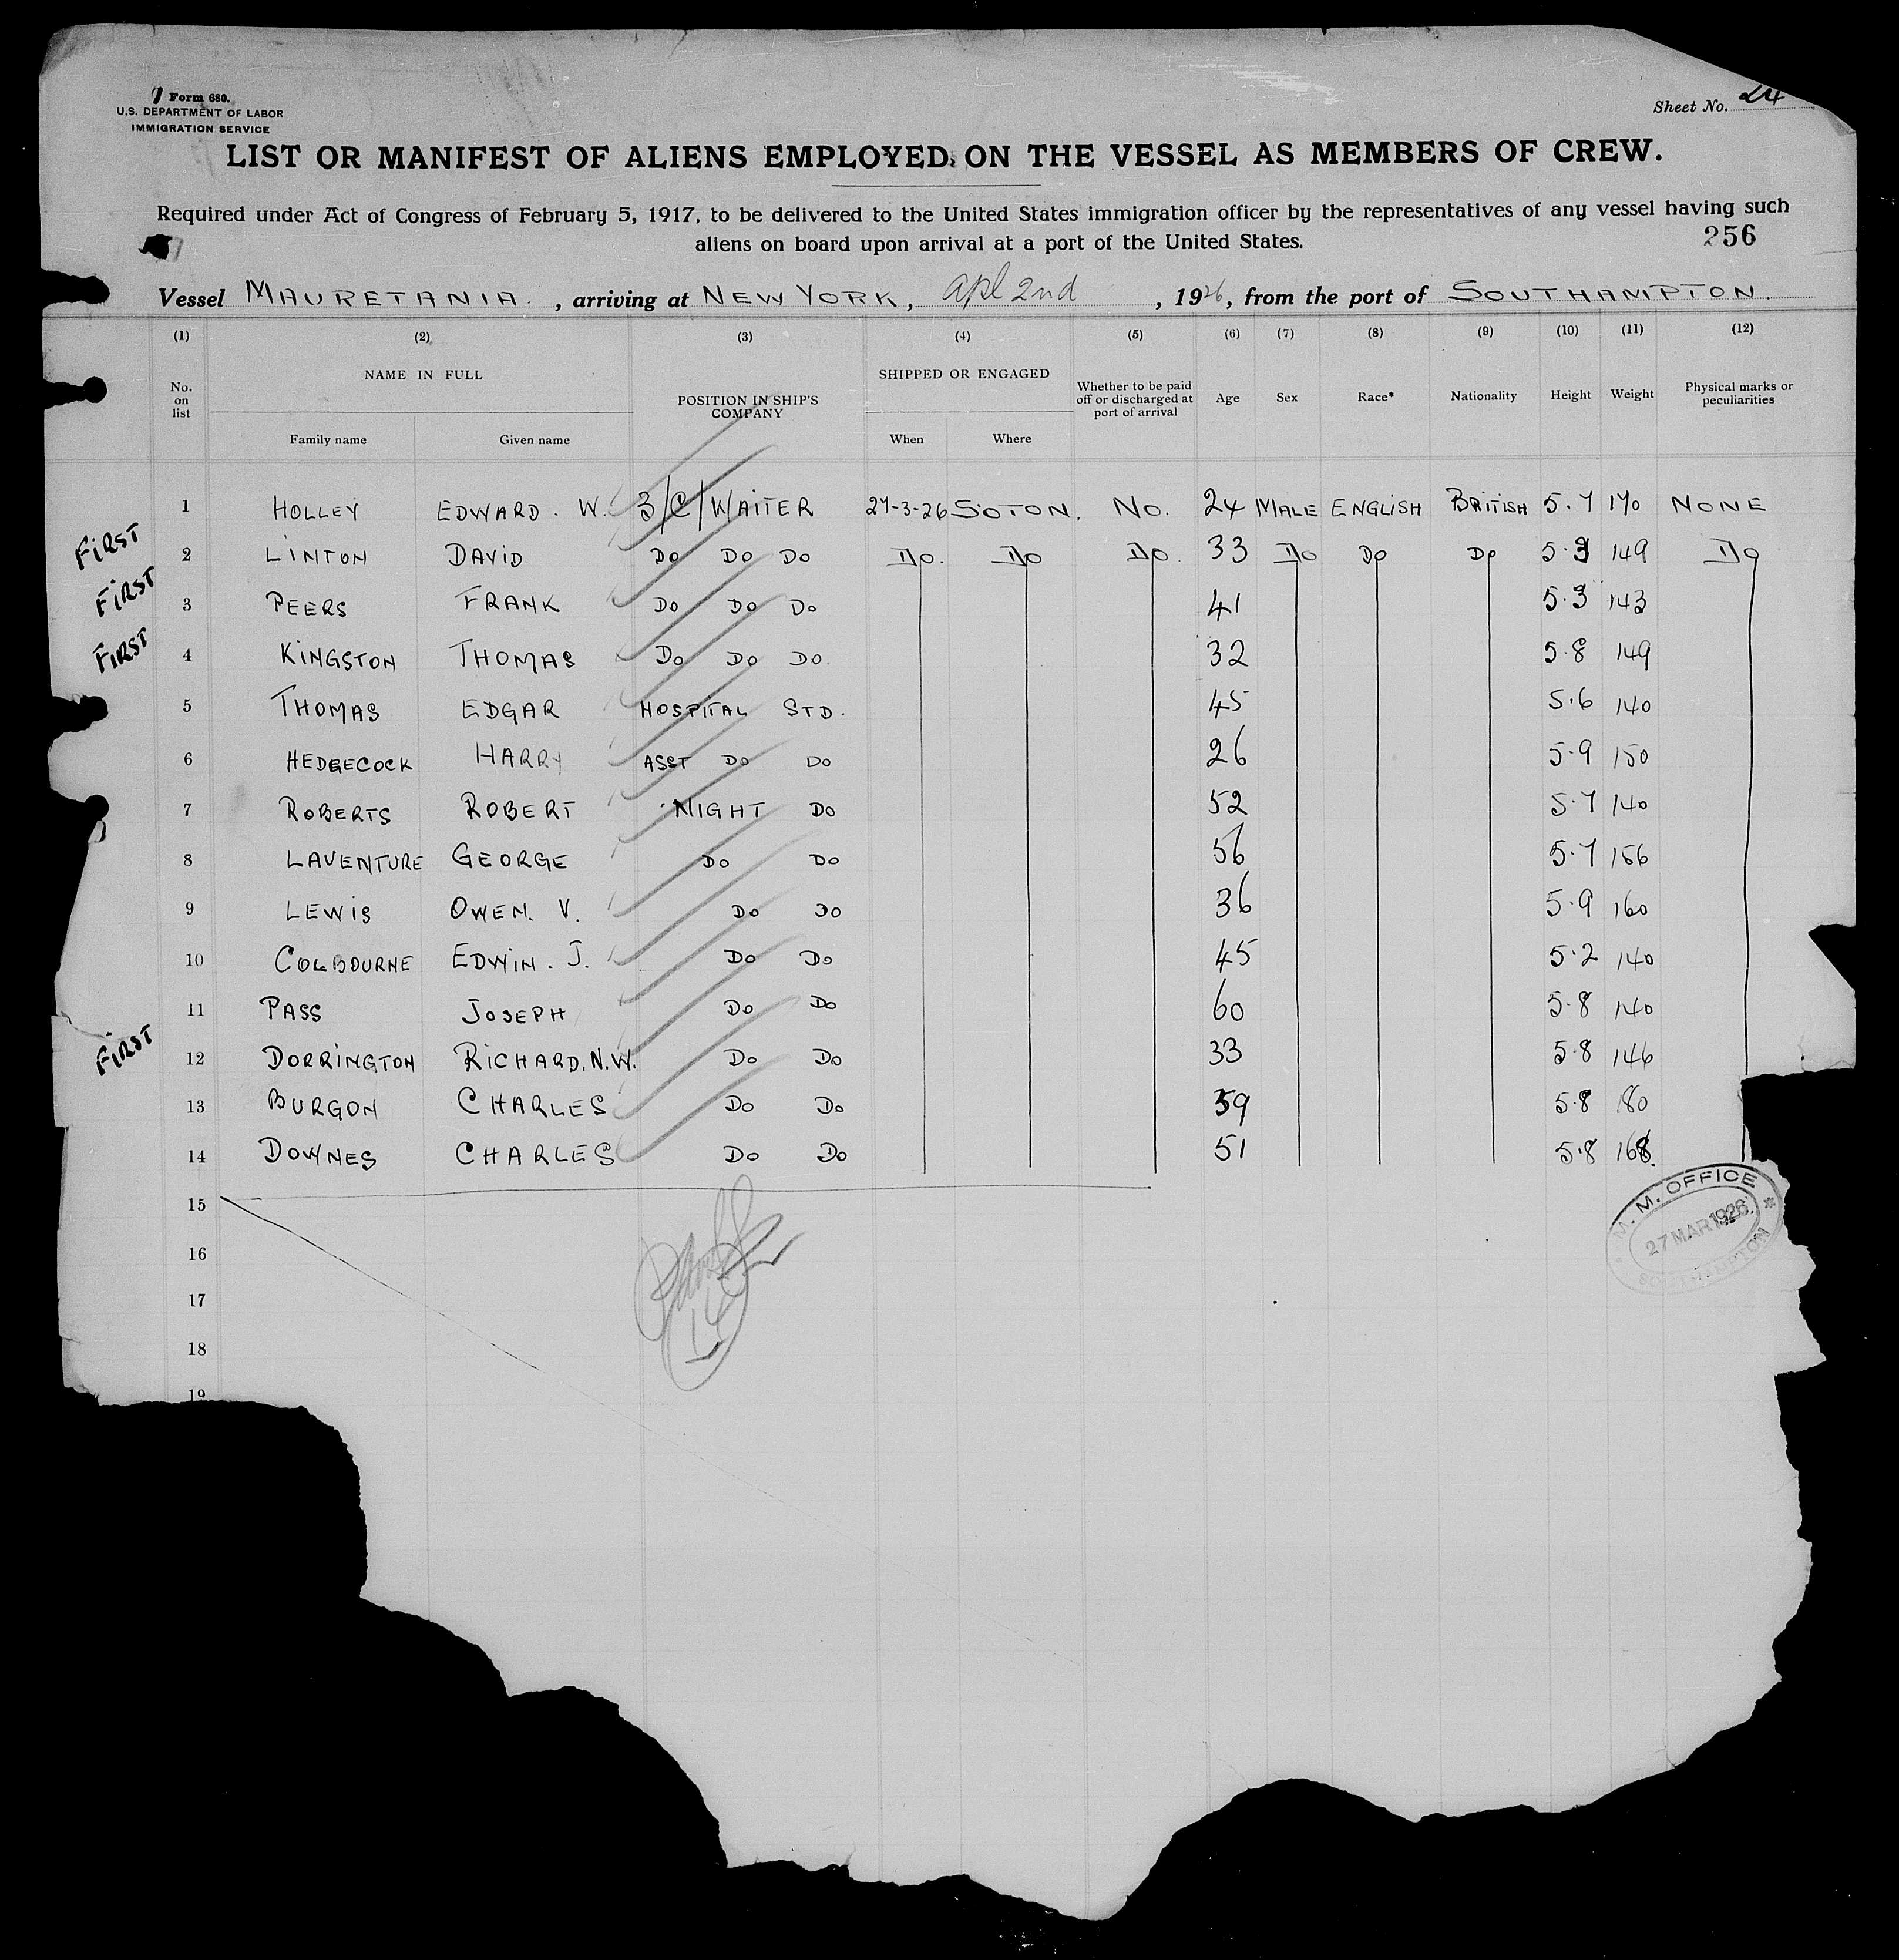 Form 680.
U.S. DEPARTMENT OF LABOR
IMMIGRATION SERVICE
Sheet No. 24
LIST OR MANIFEST OF ALIENS EMPLOYED ON THE VESSEL AS MEMBERS OF CREW.
Required under Act of Congress of February 5, 1917, to be delivered to the United States immigration officer by the representatives of any vessel having such
aliens on board upon arrival at a port of the United States.
256
Vessel MAURETANIA. , arriving at NEW YORK, Apl 2nd , 1926, from the port of SOUTHAMPTON.
(1) (2) (3) (4) (5) (6) (7) (8) (9) (10) (11) (12)
No. on list NAME IN FULL POSITION IN SHIP'S COMPANY SHIPPED OR ENGAGED Whether to be paid off or discharged at port of arrival Age Sex Race* Nationality Height Weight Physical marks or peculiarities
Family name Given name When Where
1 HOLLEY EDWARD. W. 3/C/ WAITER 27-3-26 SOTON. NO. 24 MALE ENGLISH BRITISH 5.7 170 NONE
FIRST 2 LINTON DAVID DO DO DO DO. DO DO. 33 DO DO DO 5.3 149 DO
FIRST 3 PEERS FRANK DO DO DO 41 5.3 143
FIRST 4 KINGSTON THOMAS DO DO DO. 32 5.8 149
5 THOMAS EDGAR HOSPITAL STD. 45 5.6 140
6 HEDGECOCK HARRY ASST DO DO 26 5.9 150
7 ROBERTS ROBERT NIGHT DO 52 5.7 140
8 LAVENTURE GEORGE DO DO 56 5.7 156
9 LEWIS OWEN. V. DO DO 36 5.9 160
10 COLBOURNE EDWIN. J. DO DO 45 5.2 140
11 PASS JOSEPH DO DO 60 5.8 140
FIRST 12 DORRINGTON RICHARD. N. W. DO DO 33 5.8 146
13 BURGON CHARLES DO DO 39 5.8 180
14 DOWNES CHARLES DO DO 51 5.8 168.
15
16
17
18
19
14
M. M. OFFICE
27 MAR 1926
SOUTHAMPTON